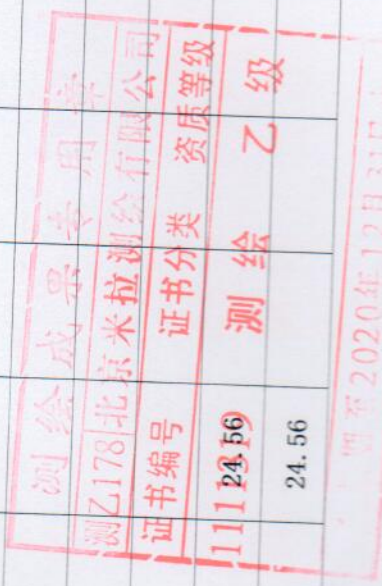 测绘成果专用章
测乙178 北京米拉测绘有限公司
证书编号 证书分类 资质等级
测绘 乙级
24.56
24.56
期至2020年12月31日